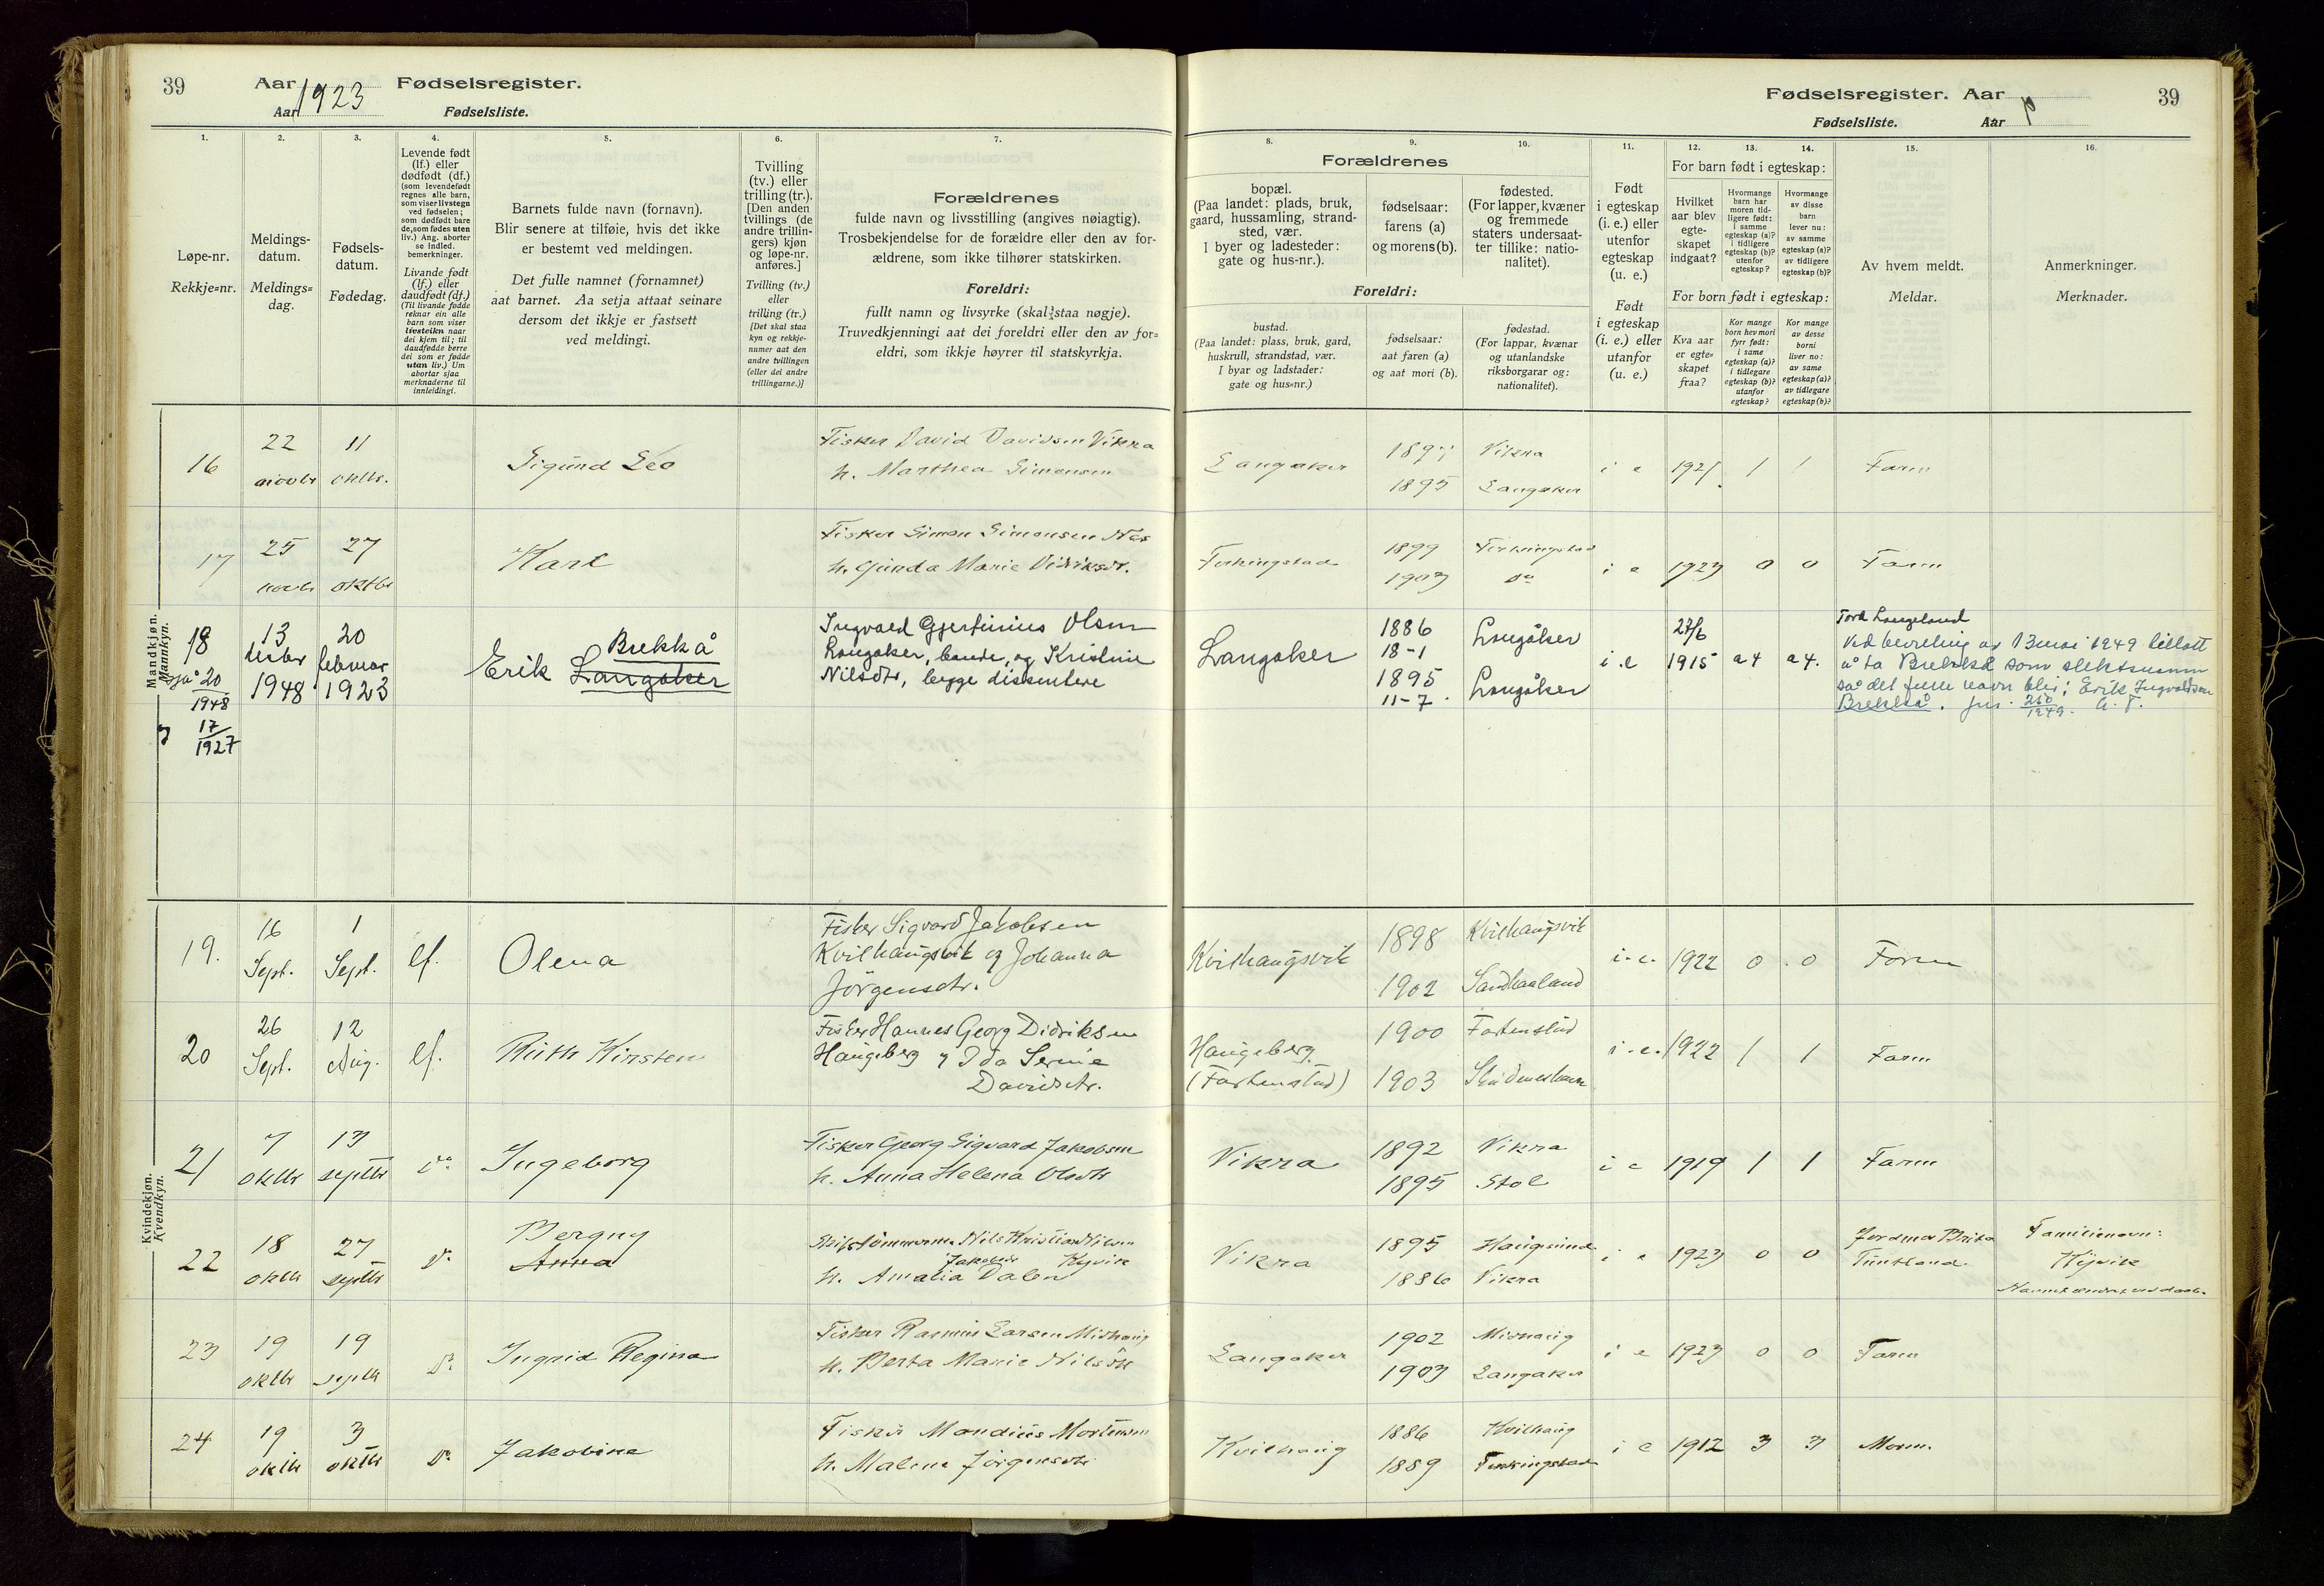 39 Aar 1923 Fødselsregister.
Aar Fødselsliste.
Fødselsregister. Aar 39
Fødselsliste. Aar
1. 2. 3. 4. 5. 6. 7. 8. 9. 10. 11. 12. 13. 14. 15. 16.
Løpe-nr.
Rekkje=nr.
Meldings-
datum.
Meldings=
dag.
Fødsels-
datum.
Fødedag.
Levende født
(lf.) eller
dødfødt (df.)
(som levendefødt
regnes alle barn,
som viser livstegn
ved fødselen;
som dødfødt bare
de, som fødes uten
liv.) Ang. aborter
se indled.
bemerkninger.
Livande født
(lf.) eller
daudfødt (df.)
(Til livande fødde
reknar ein alle
barn som viser
livsteikn naar
dei kjem til; til
daudfødde berre
dei som er fødde
utan liv.) Um
abortar sjaa
merknaderne til
innleidingi.
Barnets fulde navn (fornavn).
Blir senere at tilføie, hvis det ikke
er bestemt ved meldingen.
Det fulle namnet (fornamnet)
aat barnet. Aa setja attaat seinare
dersom det ikkje er fastsett
ved meldingi.
Tvilling
(tv.) eller
trilling (tr.).
[Den anden
tvillings (de
andre trillin-
gers) kjøn
og løpe-nr.
anføres.]
Tvilling (tv.)
eller
trilling (tr.)
[Det skal staa
kyn og rekkje-
numer aat den
andre tvillingen
(eller dei andre
trillingarne.)]
Forældrenes
fulde navn og livsstilling (angives nøiagtig).
Trosbekjendelse for de forældre eller den av for-
ældrene, som ikke tilhører statskirken.
Foreldri:
fullt namn og livsyrke (skal staa nøgje).
Truvedkjenningi aat dei foreldri eller den av for=
eldri, som ikkje høyrer til statskyrkja.
Forældrenes
bopæl.
(Paa landet: plads, bruk,
gaard, hussamling, strand-
sted, vær.
I byer og ladesteder:
gate og hus-nr.).
fødselsaar:
farens (a)
og morens (b).
fødested.
(For lapper, kvæner
og fremmede
staters undersaat-
ter tillike: natio-
nalitet).
Foreldri:
bustad.
(Paa landet: plass, bruk, gard,
huskrull, strandstad, vær.
I byar og ladstader:
gate og hus=nr.)
fødselsaar:
aat faren (a)
og aat mori (b).
fødestad.
(For lappar, kvænar
og utanlandske
riksborgarar og:
nationalitet).
Født
i egteskap
(i. e.) eller
utenfor
egteskap
(u. e.)
Født
i egteskap
(i. e.) eller
utanfor
(u. e.)
For barn født i egteskap:
Hvilket
aar blev
egte-
skapet
indgaat?
Hvormange
barn har
moren tid-
ligere født:
i samme
egteskap (a)?
i tidligere
egteskap (b)?
utenfor
egteskap?
Hvormange
av disse
barn
lever nu:
av samme
egteskap (a)?
av tidligere
egteskap (b)?
For born født i egteskap:
Kva aar
er egte=
skapet
fraa?
Kor mange
born hev mori
fyrr født:
i same
egteskap (a)?
i tidlegare
egteskap (b)?
utanfor
egteskap?
Kor mange
av desse
borni
liver no:
av same
egteskap (a)?
av tidlegare
egteskap (b)?
Av hvem meldt.
Meldar.
Anmerkninger.
Merknader.
Mandkjøn.
Mannkyn.
16 22 novbr 11 oktbr. Sigund Leo
Fisker David Davidsen Vikra
h. Marthea Simonsen
Langaker 1895 Vikra Langaker i e 1921 1 1 Farm
17 25 novbr 27 oktbr Karl
Fisker Simon Simonsen Nes
h. Gunda Marie Didriksdr.
Ferkingstad 1899 1903 Ferkingstad do i e 1923 0 0 Farm
18 sjå 20/1948 17/1927
13 desbr 1948 20 februar 1923
Brekkå
Erik Langaker
Ingvald Gjertinius Olsen
Langaker, bonde, og Kristine
Nilsdtr, begge dissentere
Langaker 1886 18-1 1895 11-7. Langåker Langåker i. e 27/6 1915 a 4 a 4.
Tord Langeland
Ved bevilling av 13 mai 1949 tillatt
å ta Brekkå som slektsnamn
så det fulle navn blir: Erik Ingvaldsen
Brekkå. jnr. 260/1949.
Kvindekjøn.
Kvendkyn.
19. 16 Sept. 1 Sept. lf. Olena
Fisker Sigvard Jakobsen
Kvilhaugsvik og Johanna
Jørgensdtr.
Kvilhaugsvik 1898 1902 Kvilhaugsvik Sandhaaland i. e. 1922 0 0 Farm
20 26 Sept. 12 Aug. lf. Ruth Kirsten
Fisker Hannes Georg Didriksen
Haugeberg og Ida Serine
Davidsdtr.
Haugeberg (Fartenstad) 1900 1903 Fartenstad Skudeneshavn i. e. 1922 1 1 Farm
21 7 oktbr 13 septbr do Ingeborg
Fisker Georg Sigvard Jakobsen
h. Anna Helena Olsdtr
Vikra 1892 1895 Vikra Stol i e 1919 1 1 Farm
22 18 oktbr 27 septbr do Bergny
Anna
Skibstømmerm. Nils Kristian Nilsen
Jakobsdr Kyvik
h. Amalia Dalen
Vikra 1895 1886 Haugesund Vikra i e 1923 0 0 Jordmor Brita
Tuntland.
Familienavn:
Kyvik
23 19 oktbr 19 septbr do Ingrid Regina
Fisker Rasmus Larsen Mishaug
h. Berta Marie Nilsdtr
Langaker 1902 1903 Mishaug Langaker i e 1923 0 0 Farm
24 19 oktbr 3 oktbr do Jakobina
Fisker Mandius Mortensen
h. Malene Jörgensdtr
Kvilhaug 1886 1889 Kvilhaug Ferkingstad i e 1912 3 3 Morm.